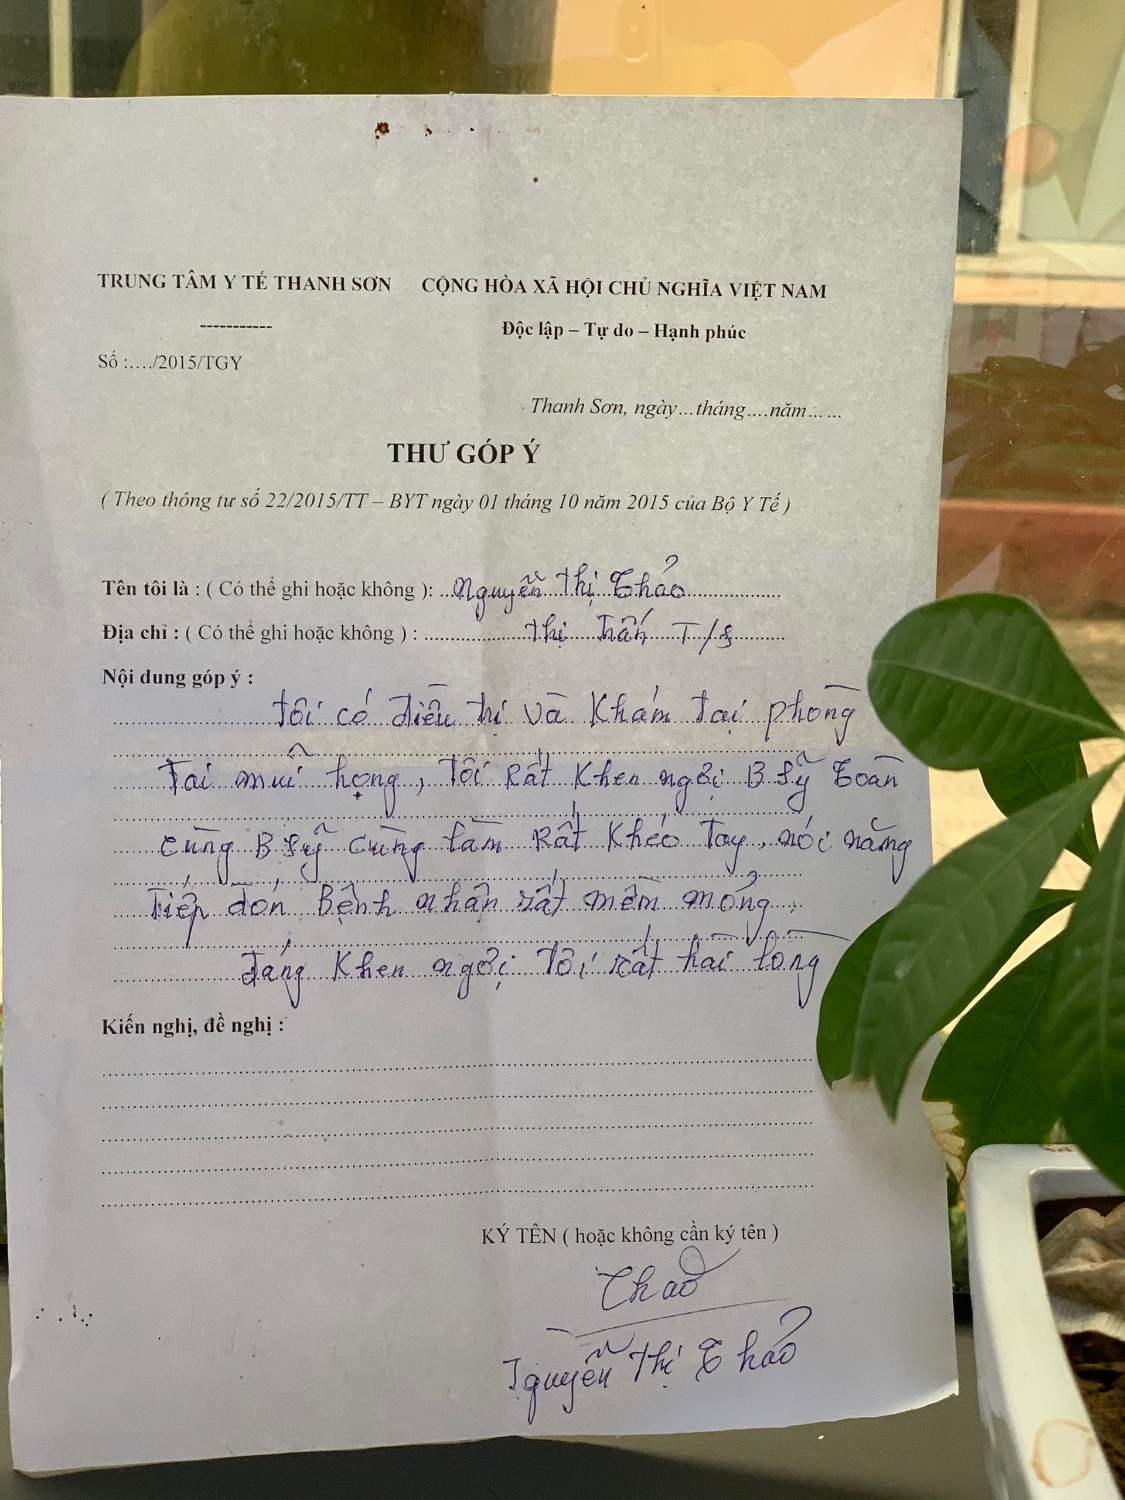 TRUNG TÂM Y TẾ THANH SƠN
CỘNG HÒA XÃ HỘI CHỦ NGHĨA VIỆT NAM
-----------
Độc lập – Tự do – Hạnh phúc
Số :..../2015/TGY
Thanh Sơn, ngày...tháng....năm......
THƯ GÓP Ý
( Theo thông tư số 22/2015/TT – BYT ngày 01 tháng 10 năm 2015 của Bộ Y Tế )
Tên tôi là : ( Có thể ghi hoặc không ): Nguyễn Thị Thảo
Địa chỉ : ( Có thể ghi hoặc không ) : Thị Trấn T/S
Nội dung góp ý :
Tôi có điều trị và Khám Tại phòng
Tai mũi họng, Tôi Rất Khen ngợi B sỹ Toàn
cùng B sỹ Cùng làm Rất Khéo Tay, nói năng
Tiếp đón Bệnh nhân rất mềm mỏng,
đáng Khen ngợi Tôi rất hài lòng
Kiến nghị, đề nghị :
KÝ TÊN ( hoặc không cần ký tên )
Thao
Nguyễn Thị Thảo